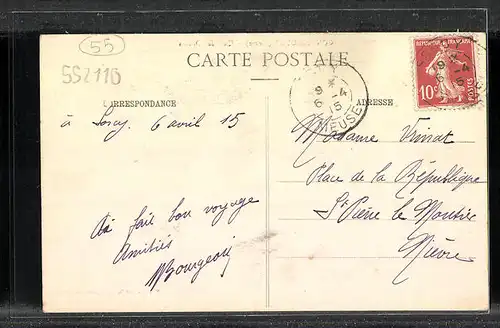 55
552116
CARTE POSTALE
CORRESPONDANCE
ADRESSE
9 * 6 -4 15
MEUSE
10c
POSTES
à Sorcy 6 avril 15
Ai fait bon voyage
Amitiés
MBourgeois
Madame Vinsat
Place de la République
St Pierre le Moutier
Nièvre